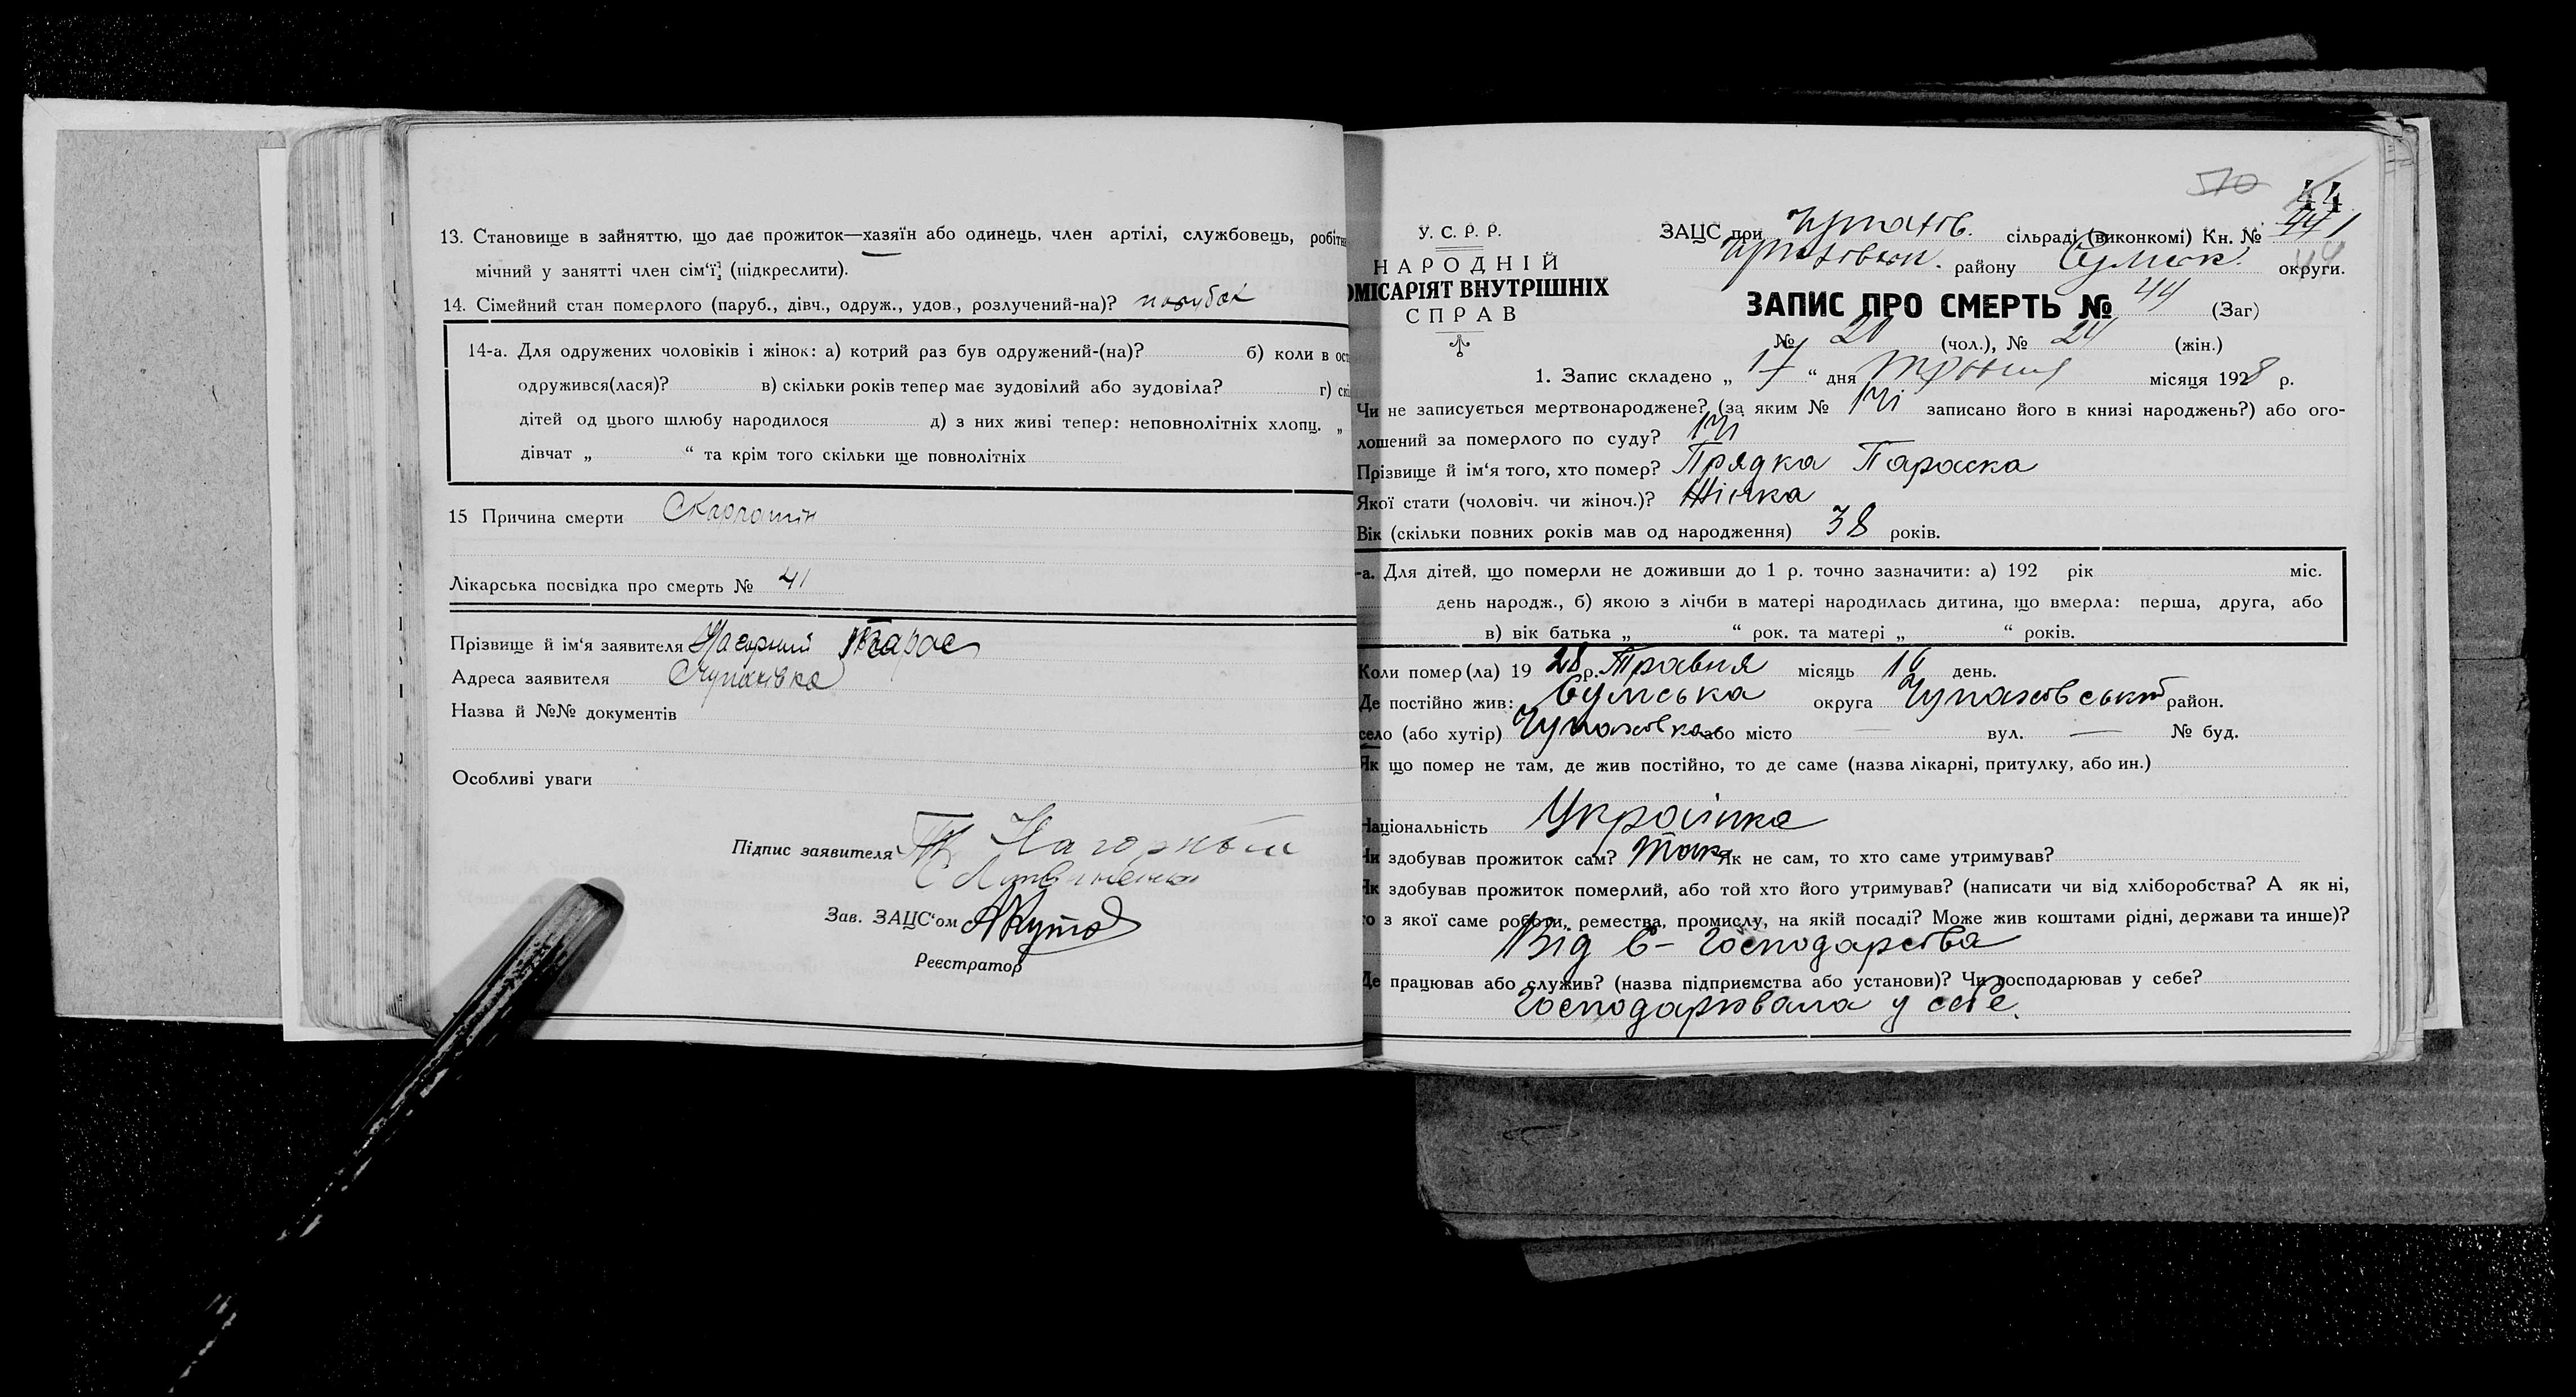 13. Становище в зайняттю, що дає прожиток—хазяїн або одинець, член артілі, службовець, робітн
мічний у занятті член сім'ї, (підкреслити).
14. Сімейний стан померлого (паруб., дівч., одруж., удов., розлучений-на)? парубок
14-а. Для одружених чоловіків і жінок: а) котрий раз був одружений-(на)? б) коли в ост
одружився(лася)? в) скільки років тепер має зудовілий або зудовіла? г) скі
дітей од цього шлюбу народилося д) з них живі тепер: неповнолітніх хлопц. „
дівчат „ “ та крім того скільки ще повнолітніх
15 Причина смерти Скарлатін
Лікарська посвідка про смерть № 41
Прізвище й ім'я заявителя Нагорний Тарас
Адреса заявителя Чупахівка
Назва й №№ документів
Особливі уваги
Підпис заявителя Нагорный
Зав. ЗАЦС'ом
Реєстратор
570 44
У. С. Р. Р.
НАРОДНІЙ
ОМІСАРІЯТ ВНУТРІШНІХ
СПРАВ
ЗАЦС при Чупахів. сільраді (виконкомі) Кн. № 441
Чупахівськ. району Сумськ. округи. 44
ЗАПИС ПРО СМЕРТЬ № 44 (Заг)
№ 20 (чол.), № 24 (жін.)
1. Запис складено „ 17 “ дня Травня місяця 1928 р.
Чи не записується мертвонароджене? (за яким № Ні записано його в книзі народжень?) або ого-
лошений за померлого по суду? Ні
Прізвище й ім'я того, хто помер? Прядка Параска
Якої стати (чоловіч. чи жіноч.)? Жінка
Вік (скільки повних років мав од народження) 38 років.
-а. Для дітей, що померли не доживши до 1 р. точно зазначити: а) 192 рік міс.
день народж., б) якою з лічби в матері народилась дитина, що вмерла: перша, друга, або
в) вік батька „ “ рок. та матері „ “ років.
Коли помер(ла) 1928 р. Травня місяць 16 день.
Де постійно жив: Сумська округа Чупаховський район.
село (або хутір) Чупаховка або місто — вул. — № буд.
Як що помер не там, де жив постійно, то де саме (назва лікарні, притулку, або ин.)
Національність Українка
Чи здобував прожиток сам? Так Як не сам, то хто саме утримував?
Як здобував прожиток померлий, або той хто його утримував? (написати чи від хліборобства? А як ні,
то з якої саме роботи, ремества, промислу, на якій посаді? Може жив коштами рідні, держави та инше)?
Від с-господарства
Де працював або служив? (назва підприємства або установи)? Чи господарював у себе?
Господарювала у себе.